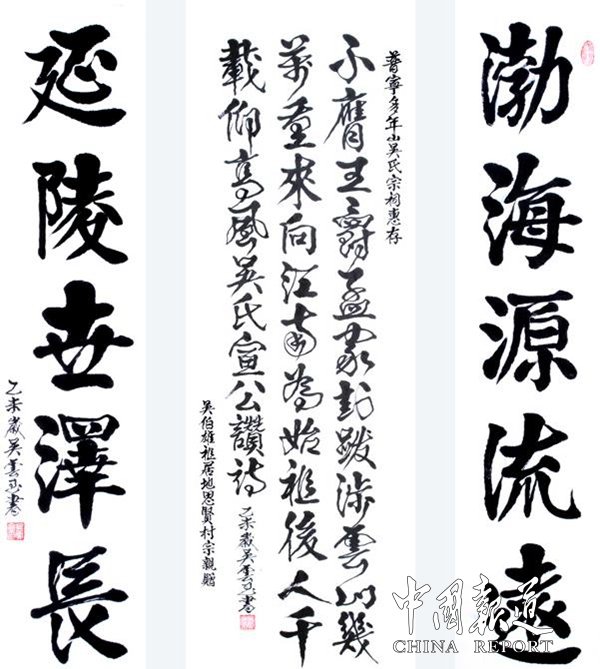 渤海源流遠
普寧多年山吳氏宗祠惠存
不膺王爵孟家封跋涉雲山幾
萬重來向江南為始祖後人千
載仰高風吳氏宣公讚詩
乙未歲吳雲書
吳伯雄祖居地思賢村宗親贈
延陵世澤長
乙未歲吳雲書
中国報道
CHINA REPORT